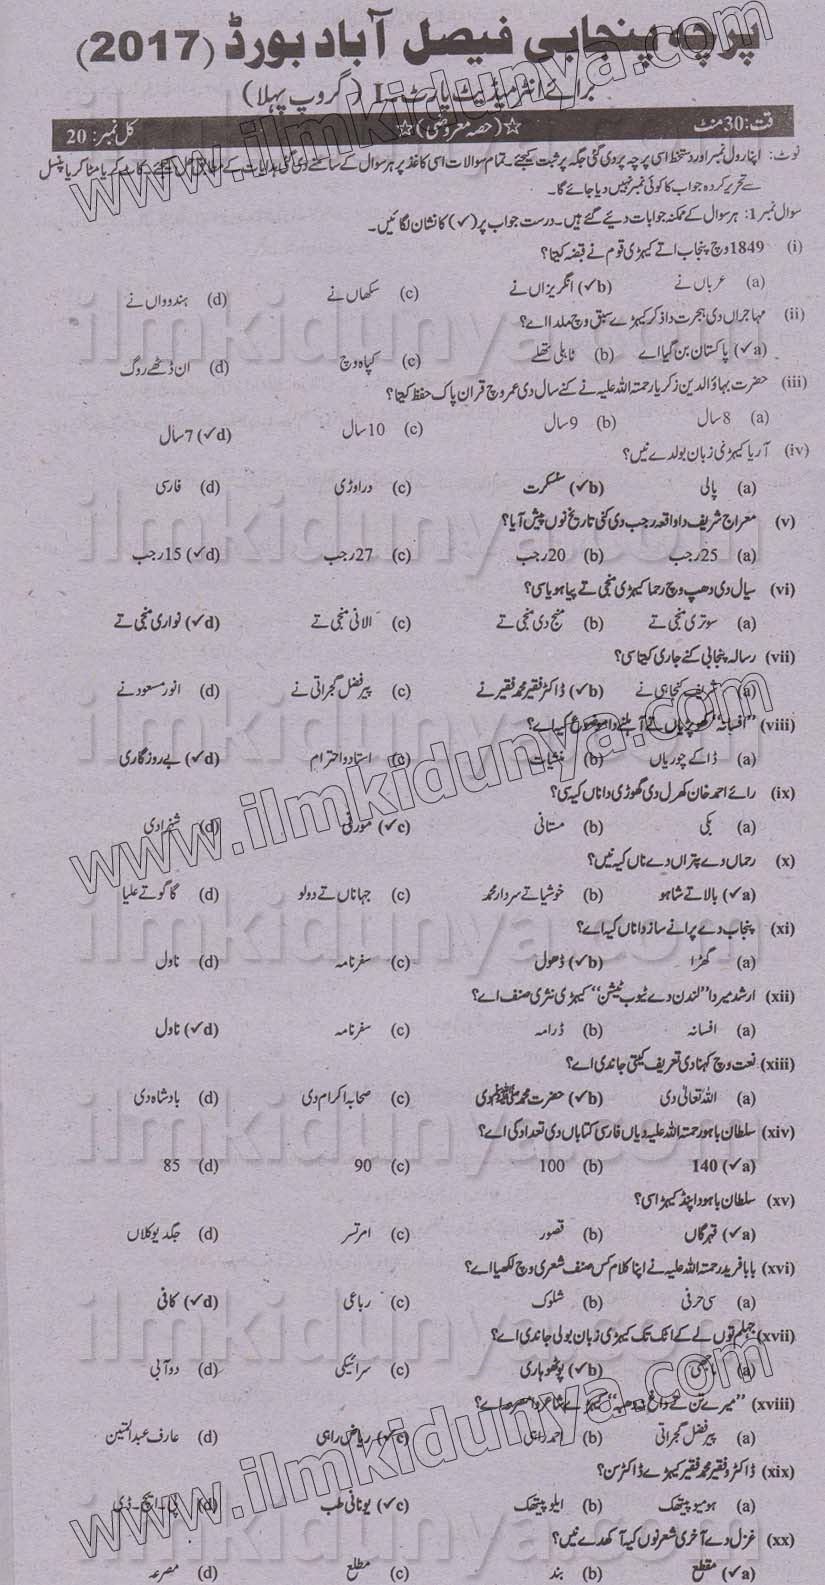 پرچہ پنجابی فیصل آباد بورڈ (2017)
برائے انٹرمیڈیٹ پارٹ۔I (گروپ پہلا)
وقت: 30 منٹ ☆(حصہ معروضی)☆ کل نمبر: 20
نوٹ: اپنا رول نمبر اور دستخط اسی پرچہ پر دی گئی جگہ پر ثبت کیجئے۔ تمام سوالات اسی کاغذ پر ہر سوال کے سامنے دی گئی ہدایات کے مطابق حل کیجئے۔ کاٹ کر یا مٹا کر یا پنسل
سے تحریر کردہ جواب کا کوئی نمبر نہیں دیا جائے گا۔
سوال نمبر 1: ہر سوال کے ممکنہ جوابات دیئے گئے ہیں۔ درست جواب پر (✓) کا نشان لگائیں۔
(i) 1849 وچ پنجاب اتے کیہڑی قوم نے قبضہ کیتا؟
(a) عرباں نے (b✓) انگریزاں نے (c) سکھاں نے (d) ہندوواں نے
(ii) مہاجراں دی ہجرت دا ذکر کیہڑے سبق وچ ملدا اے؟
(a✓) پاکستان بن گیا اے (b) ٹاہلی تھلے (c) کپاہ وچ (d) ان ڈٹھے روگ
(iii) حضرت بہاؤالدین زکریا رحمتہ اللہ علیہ نے کنے سال دی عمر وچ قران پاک حفظ کیتا؟
(a) 8 سال (b) 9 سال (c) 10 سال (d✓) 7 سال
(iv) آریا کیہڑی زبان بولدے نیں؟
(a) پالی (b✓) سنسکرت (c) دراوڑی (d) فارسی
(v) معراج شریف دا واقعہ رجب دی کنی تاریخ نوں پیش آیا؟
(a) 25 رجب (b) 20 رجب (c) 27 رجب (d✓) 15 رجب
(vi) سیال دی دھپ وچ رحما کیہڑی منجی تے پیا ہویا سی؟
(a) سوتری منجی تے (b) منج دی منجی تے (c) الانی منجی تے (d✓) نواری منجی تے
(vii) رسالہ پنجابی کنے جاری کیتا سی؟
(a) شریف کنجاہی نے (b✓) ڈاکٹر فقیر محمد فقیر نے (c) پیر فضل گجراتی نے (d) انور مسعود نے
(viii) "افسانہ" کھوپڑیاں تے آہلنے دا موضوع کیہ اے؟
(a) ڈاکے چوریاں (b) منشیات (c) استاد و احترام (d✓) بے روزگاری
(ix) رائے احمد خان کھرل دی گھوڑی دا ناں کیہ سی؟
(a) بکی (b) مستانی (c✓) مورنی (d) شہزادی
(x) رحماں دے پتراں دے ناں کیہ نیں؟
(a✓) بالا تے شاہو (b) خوشیا تے سردار محمد (c) جہاناں تے دولو (d) گاگو تے علیا
(xi) پنجاب دے پرانے ساز دا ناں کیہ اے؟
(a) گھڑا (b✓) ڈھول (c) سفر نامہ (d) ناول
(xii) ارشد میر دا "لندن دے ٹیوب ٹیشن" کیہڑی نثری صنف اے؟
(a) افسانہ (b) ڈرامہ (c) سفر نامہ (d✓) ناول
(xiii) نعت وچ کہنا دی تعریف کیتی جاندی اے؟
(a) اللہ تعالٰی دی (b✓) حضرت محمدﷺ دی (c) صحابہ اکرام دی (d) بادشاہ دی
(xiv) سلطان باہو رحمتہ اللہ علیہ دیاں فارسی کتاباں دی تعداد کی اے؟
(a✓) 140 (b) 100 (c) 90 (d) 85
(xv) سلطان باہو دا پنڈ کیہڑا سی؟
(a✓) قہرگاں (b) قصور (c) امرتسر (d) جگدیو کلاں
(xvi) بابا فرید رحمتہ اللہ علیہ نے اپنا کلام کس صنف شعری وچ لکھیا اے؟
(a) سی حرفی (b) شلوک (c) رباعی (d✓) کافی
(xvii) جہلم توں لے کے اٹک تک کیہڑی زبان بولی جاندی اے؟
(a) ماجھی (b✓) پوٹھوہاری (c) سرائیکی (d) دوآبی
(xviii) "میرے تن تے داغ نہ دھبہ" کیہڑے شاعر دا مصرعہ اے؟
(a) پیر فضل گجراتی (b) احمد راہی (c✓) ریاض راہی (d) عارف عبدالمتین
(xix) ڈاکٹر فقیر محمد فقیر کیہڑے ڈاکٹر سن؟
(a) ہومیوپیتھک (b) ایلوپیتھک (c✓) یونانی طب (d) پی۔ ایچ۔ ڈی
(xx) غزل دے آخری شعر نوں کیہ آکھدے نیں؟
(a✓) مقطع (b) بند (c) مطلع (d) مصرعہ
www.ilmkidunya.com
ilmkidunya.com